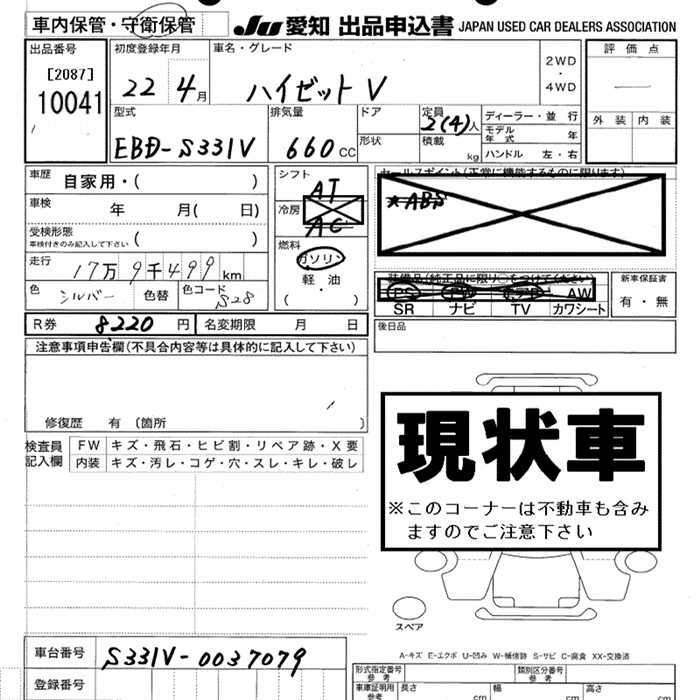 車内保管・守衛保管
JU 愛知 出品申込書 JAPAN USED CAR DEALERS ASSOCIATION
出品番号
[2087]
10041
初度登録年月
22 4月
車名・グレード
ハイゼットV
2WD
・
4WD
評価点
外装 内装
型式
EBD-S331V
排気量
660cc
ドア
形状
定員
2(4)人
積載
kg
ディーラー・並行
モデル年式 年
ハンドル 左・右
車歴 自家用・( )
車検 年 月( 日)
受検形態
車検付きのみ記入して下さい ( )
走行 17万9千499km
色 シルバー 色替 色コード S28
シフト
AT
冷房
AC
燃料
ガソリン
軽・油
・
( )
セールスポイント(正常に機能するものに限ります)
★ABS
装備品(純正品に限り○をつけてください)
PS PW エアB AW
SR ナビ TV カワシート
新車保証書
有・無
R券 8220円 名変期限 月 日
後日品
注意事項申告欄(不具合内容等は具体的に記入して下さい)
修復歴 有〔箇所 〕
検査員記入欄
FW キズ・飛石・ヒビ割・リペア跡・X要
内装 キズ・汚レ・コゲ・穴・スレ・キレ・破レ
現状車
※このコーナーは不動車も含み
ますのでご注意下さい
スペア
A-キズ E-エクボ U-凹み W-補修跡 S-サビ C-腐食 XX-交換済
車台番号 S331V-0037079
登録番号
形式指定番号
参考
類別区分番号
参考
車庫証明用
参考
長さ cm 幅 cm 高さ cm